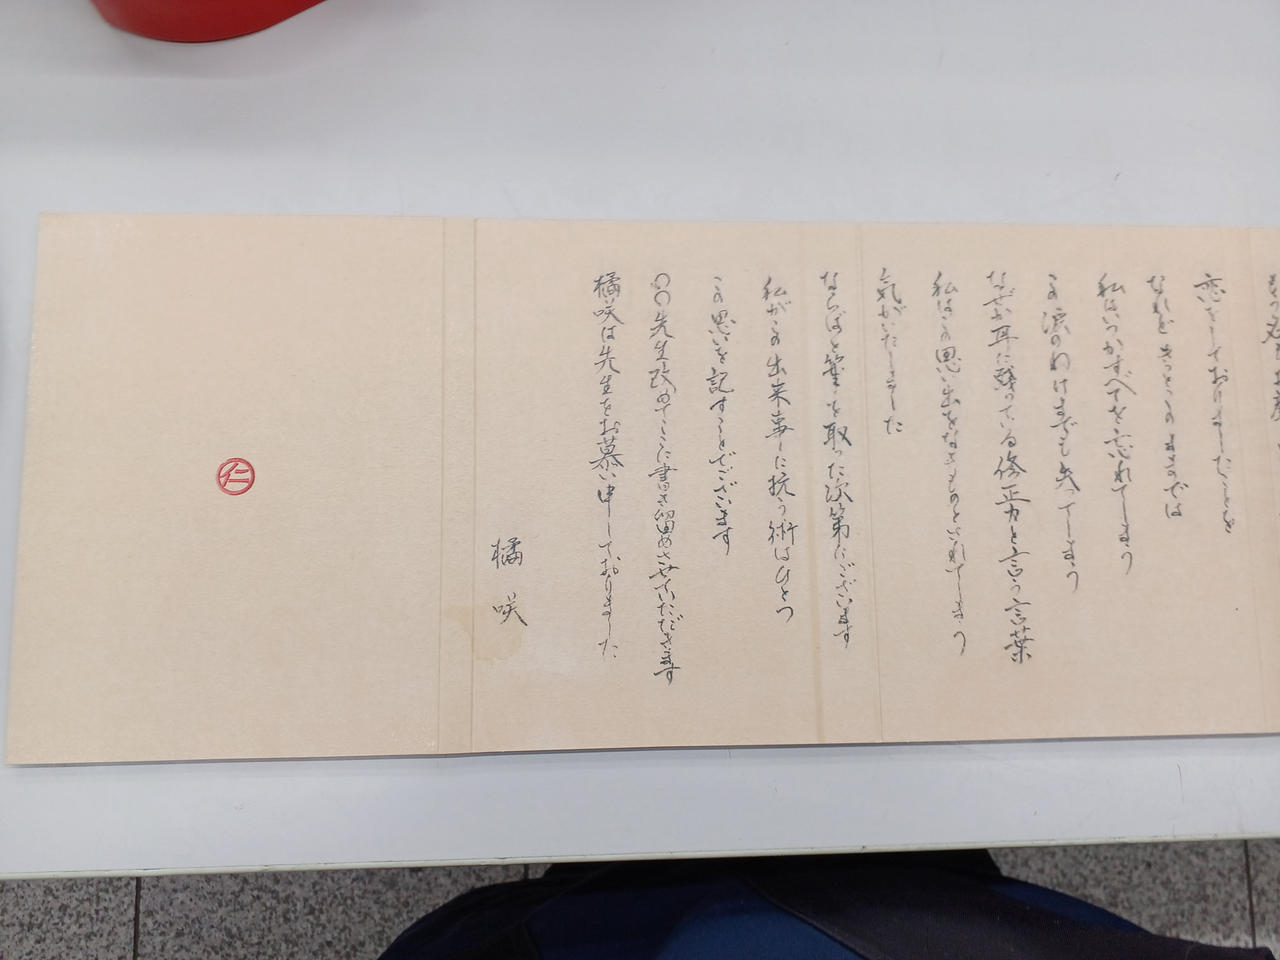 恋をしておりましたことを
なれど きっとこのままでは
私はいつかすべてを忘れてしまう
この涙のわけまでも失ってしまう
なぜか耳に残っている修正力と言う言葉
私はこの思い出をなきものとされてしまう
気がいたしました
ならばと筆を取った次第にございます
私がこの出来事に抗う術はひとつ
この思いを記すことでございます
〇〇先生改めてここに書き留めさせていただきます
橘咲は先生をお慕い申しておりました
橘 咲
仁